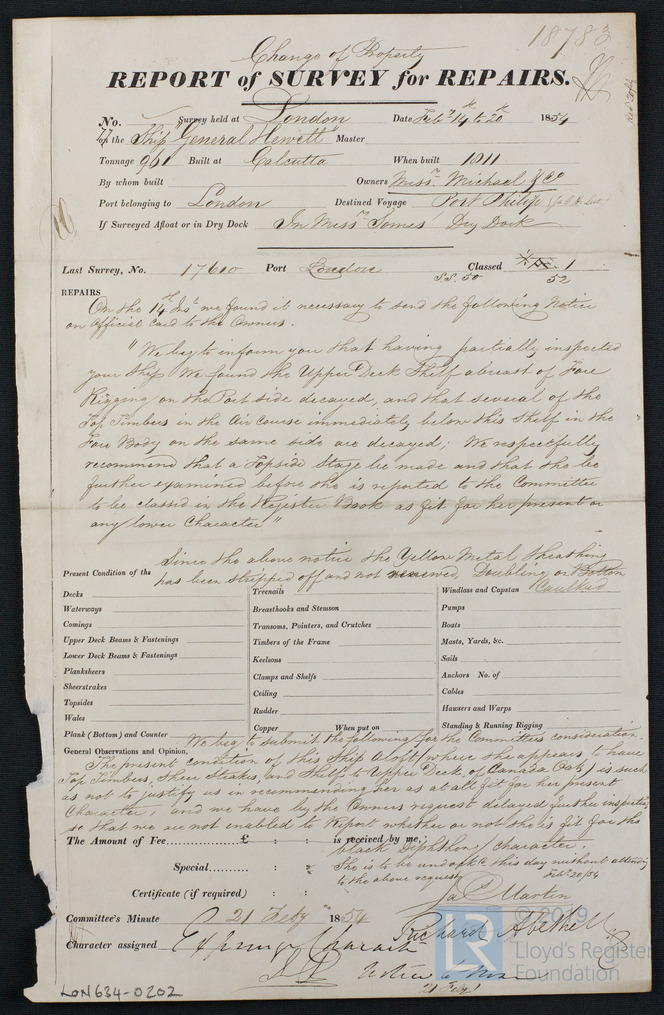 18783
Change of Property
REPORT of SURVEY for REPAIRS.
No. Survey held at London Date Feby 14th to 20th 1854
on the Ship "General Hewett" Master
Tonnage 961 Built at Calcutta When built 1811
By whom built Owners Messrs Michael & Co
Port belonging to London Destined Voyage Port Philip
If Surveyed Afloat or in Dry Dock In Messrs Somes' Dry Dock
Last Survey, No. 17610 Port London Classed 1
S.S. 50 52
REPAIRS
On the 14th Inst we found it necessary to send the following Notice
on Official Card to the Owners.
"We beg to inform you that having partially inspected
your Ship We found the Upper Deck Shelf abreast of Fore
Rigging on the Port side decayed, and that several of the
Top Timbers in the Air Course immediately below this Shelf in the
Fore Body on the same side are decayed; We respectfully
recommend that a Topside Stage be made and that she be
further examined before she is reported to the Committee
to be classed in the Register Book as fit for her present or
any lower Character"
Since the above notice the Yellow Metal Sheathing
Present Condition of the has been stripped off and not renewed, Doubling on Bottom
Caulked
Decks
Waterways
Comings
Upper Deck Beams & Fastenings
Lower Deck Beams & Fastenings
Planksheers
Sheerstrakes
Topsides
Wales
Plank (Bottom) and Counter
Treenails
Breasthooks and Stemson
Transoms, Pointers, and Crutches
Timbers of the Frame
Keelsons
Clamps and Shelfs
Ceiling
Rudder
Copper When put on
Windlass and Capstan
Pumps
Boats
Masts, Yards, &c.
Sails
Anchors No. of
Cables
Hawsers and Warps
Standing & Running Rigging
General Observations and Opinion, We beg to submit the following for the Committees consideration.
The present condition of this Ship Aloft (where she appears to have
Top Timbers, Sheer Strakes, and Shelf to Upper Deck of Canada Oak) is such
as not to justify us in recommending her as at all fit for her present
Character, and we have by the Owners request delayed further inspection
so that we are not enabled to Report whether or not she is fit for the
The Amount of Fee £ : : is received by me,
black Diphthong character.
Special : :
She is to be undocked this day without attending
to the above request Feby 20/54
Certificate (if required) : :
Jas Martin
Committee's Minute 21 Feby 1854
Richard Abethell
Character assigned Expunge Character
21 Feby
LON634-0202
LR
© 2019
Lloyd's Register
Foundation